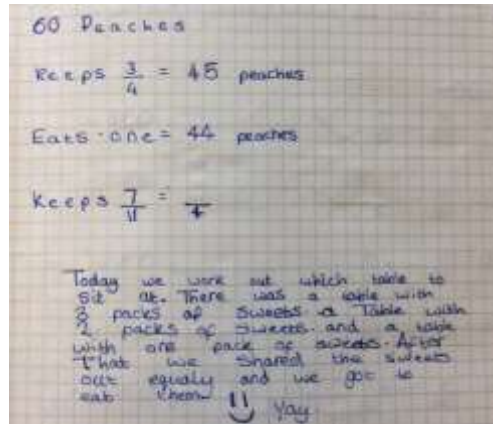 60 Peaches
Keeps 3/4 = 45 peaches
Eats one = 44 peaches
Keeps 7/11 =
Today we work out which table to
sit at. There was a table with
3 packs of sweets a Table with
2 packs of sweets and a table
with one pack of sweets. After
that we shared the sweets
out equaly and we got to
eat them
Yay